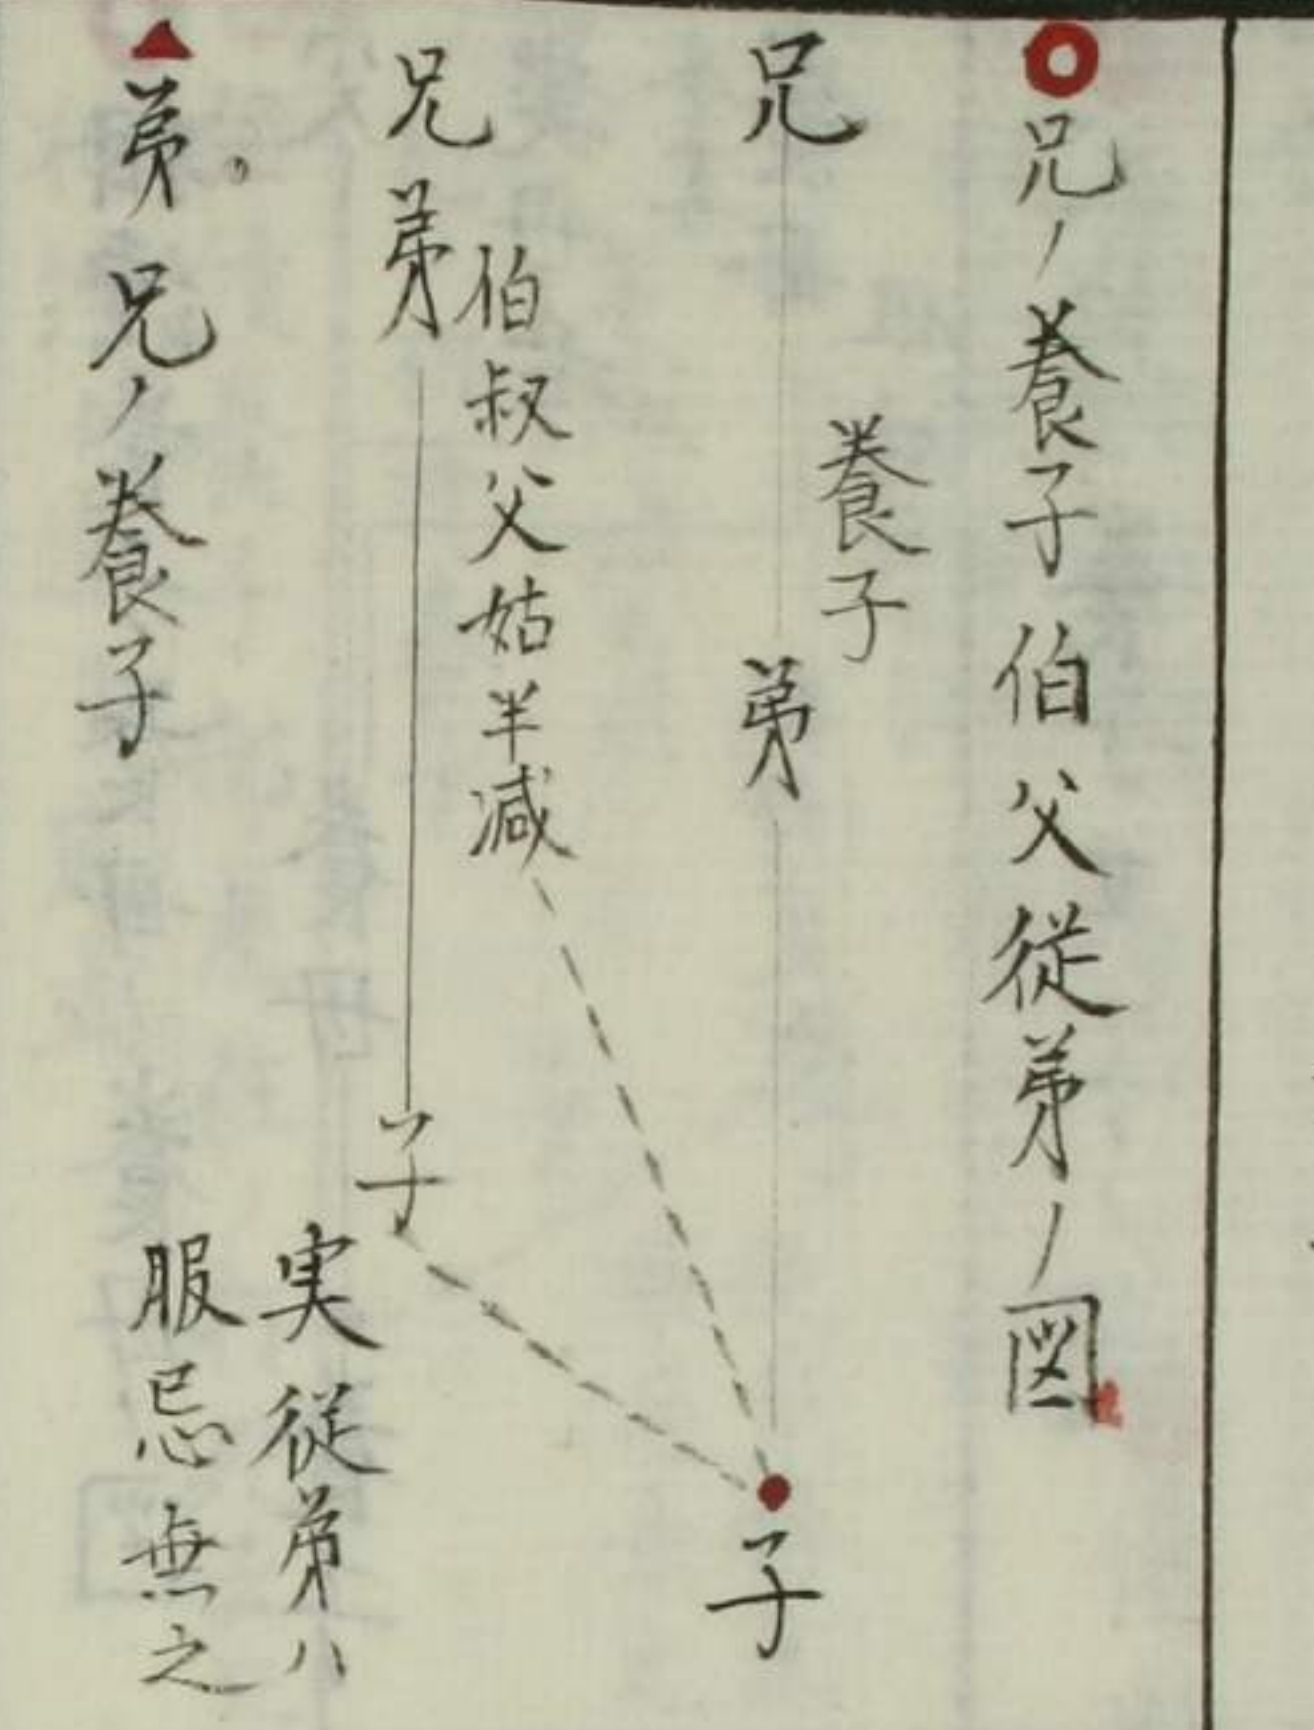 兄ノ養子伯父従弟ノ図
兄
養子
弟
子
伯叔父姑半減
兄弟
子
実従弟ハ
服忌無之
弟。兄ノ養子